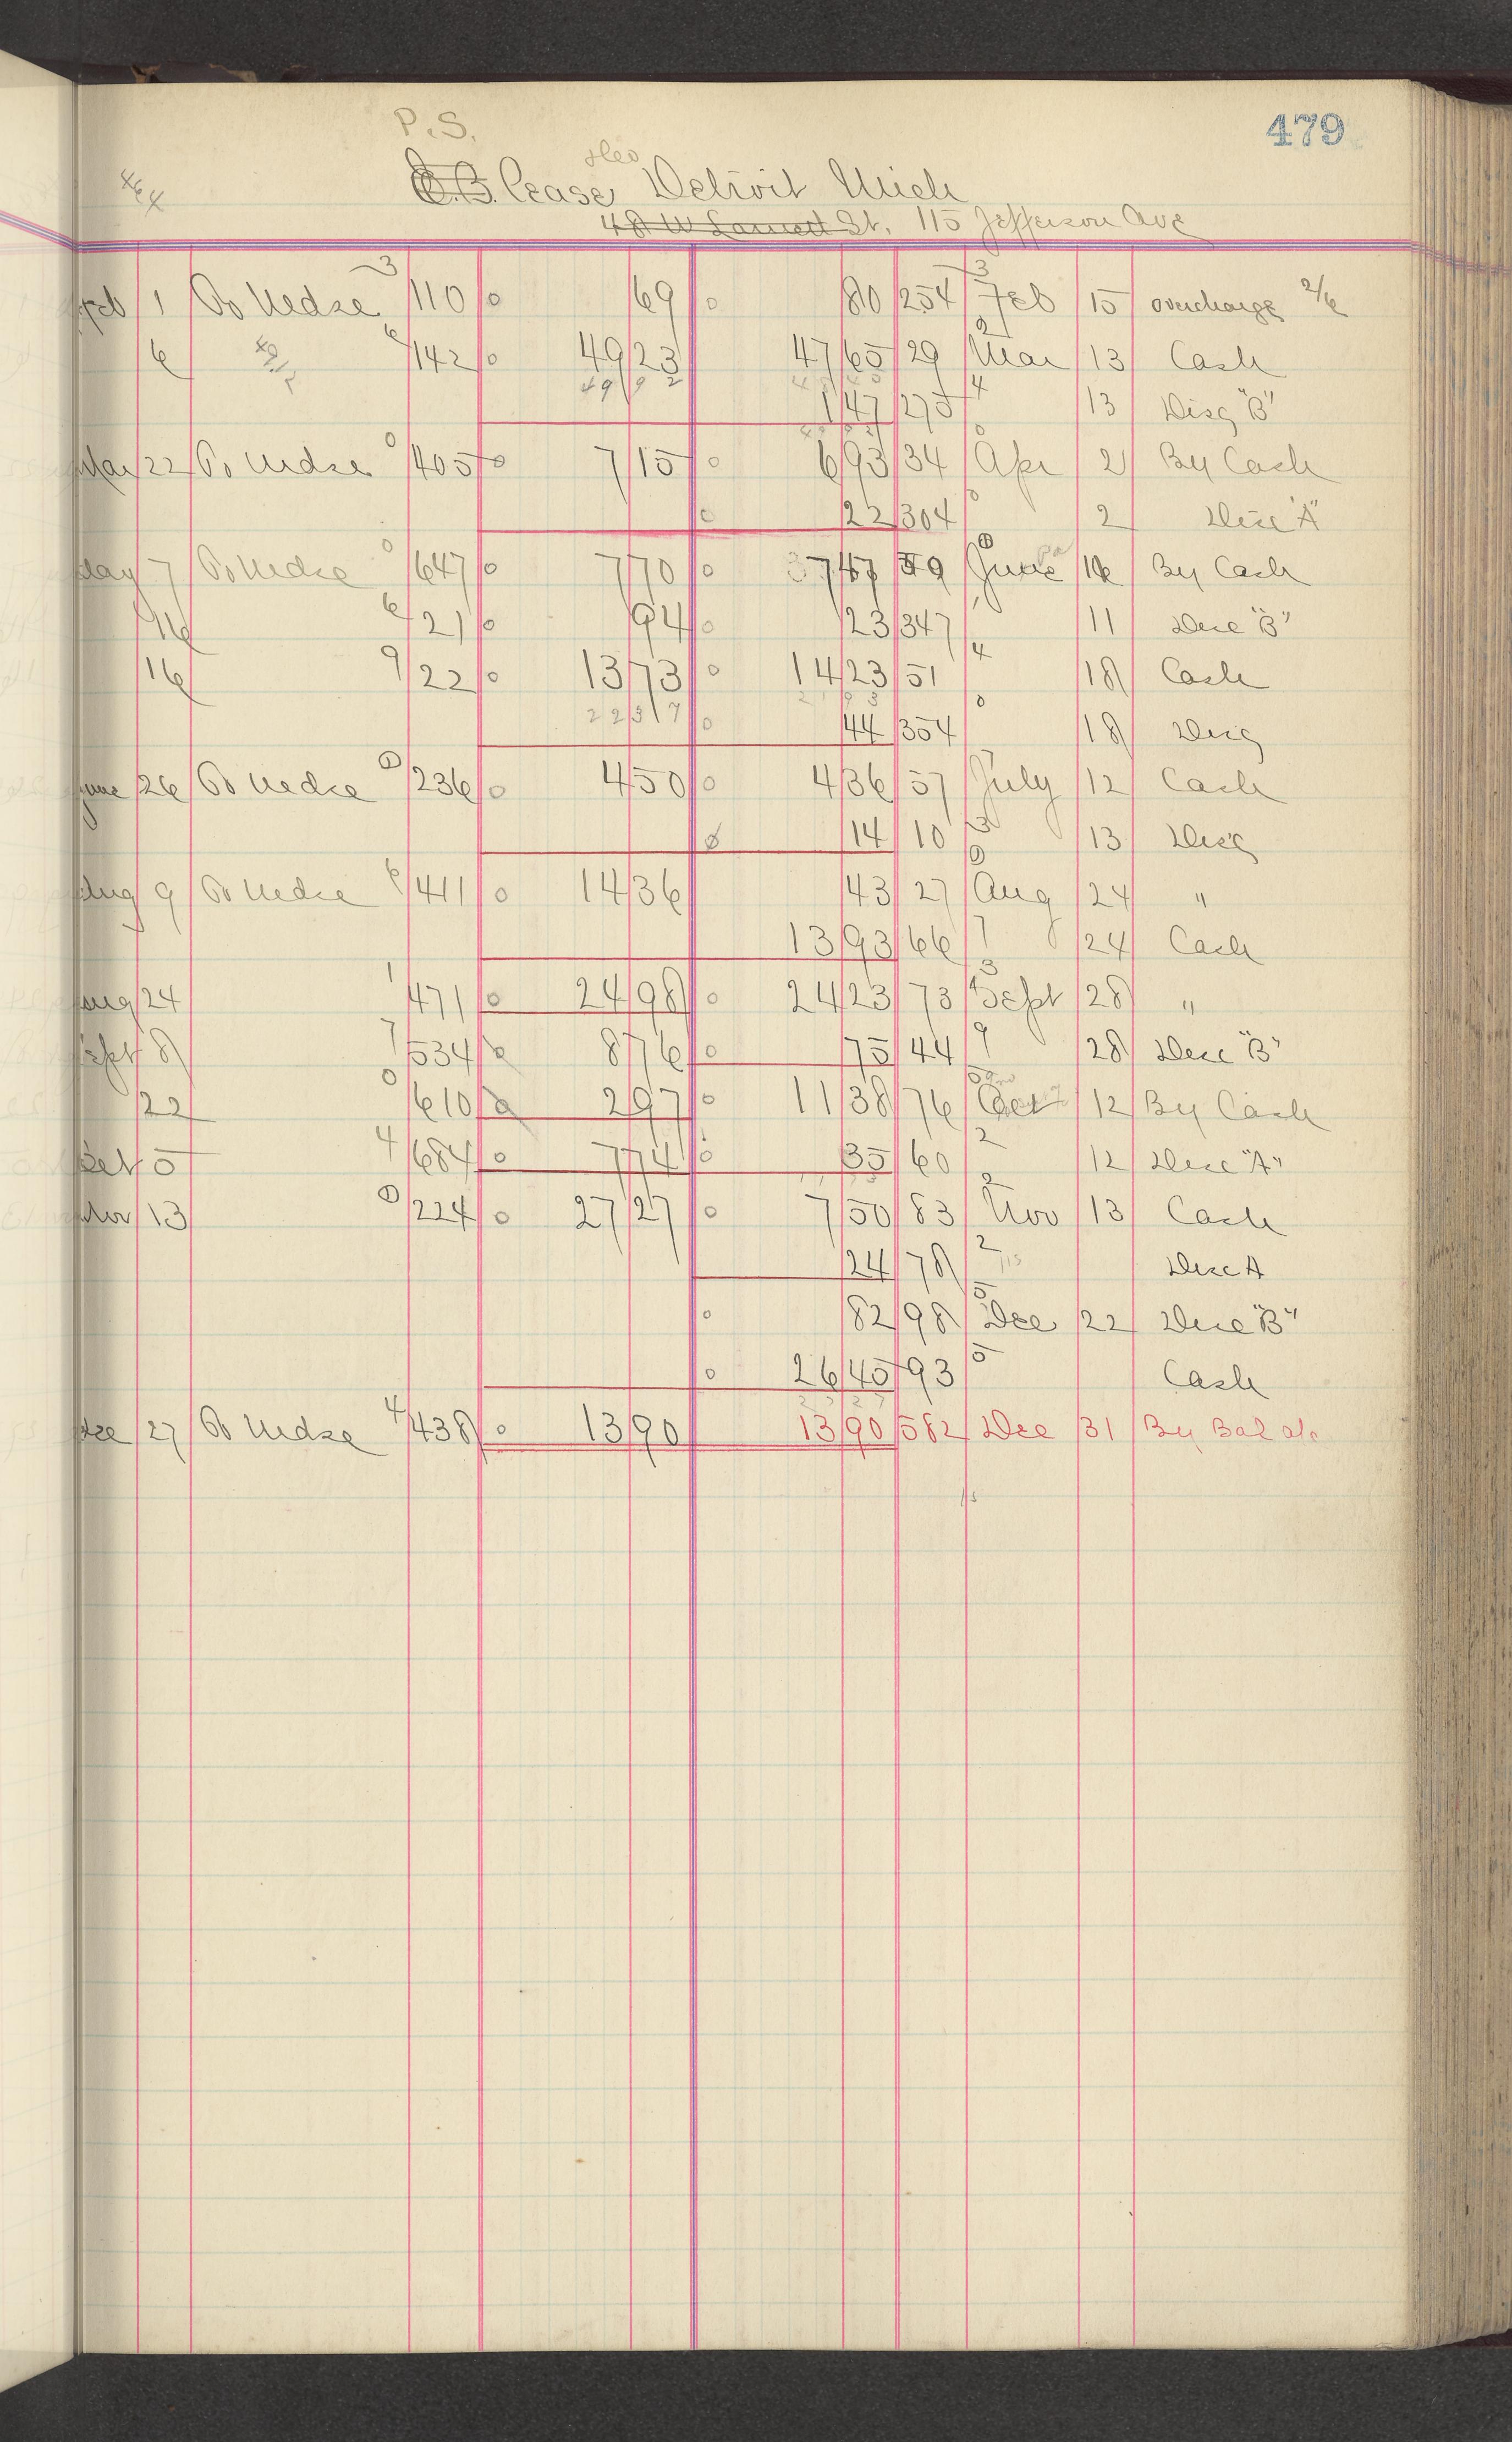 479
P.S.
Geo
C.B. Cease, Detroit Mich
48 W Larned St. 115 Jefferson Ave
Feb 1 To Mdse 3 110 69 80 254 3 Feb 15 overcharge 2/6
6 6 142 49 23 47 65 29 2 Mar 13 Cash
49 92
1 47 275 4 13 Disc "B"
Mar 22 To Mdse 0 405 7 15 6 93 34 0 Apr 2 By Cash
22 304 2 Disc "A"
May 7 To Mdse 0 647 7 70 7 47 June By Cash
16 6 21 94 23 347 11 Disc "B"
16 9 22 13 73 14 23 51 4 18 Cash
22 37
44 354 18 Disc
June 26 To Mdse 0 236 4 50 4 36 57 July 12 Cash
14 10 3 13 Disc
Aug 9 To Mdse 6 411 14 36 43 27 Aug 24 "
13 93 66 24 Cash
Aug 24 1 471 24 98 24 23 73 3 Sept 28 "
Sept 8 7 534 8 76 75 44 9 28 Disc "B"
22 0 610 2 97 11 38 76 Oct 12 By Cash
Oct 5 4 684 7 74 35 60 2 12 Disc "A"
Nov 13 0 224 27 27 7 50 83 Nov 13 Cash
24 78 2 Disc A
82 98 5 Dec 22 Disc "B"
26 45 93 5 Cash
Dec 27 To Mdse 4 438 13 90 13 90 582 Dec 31 By Bal a/c